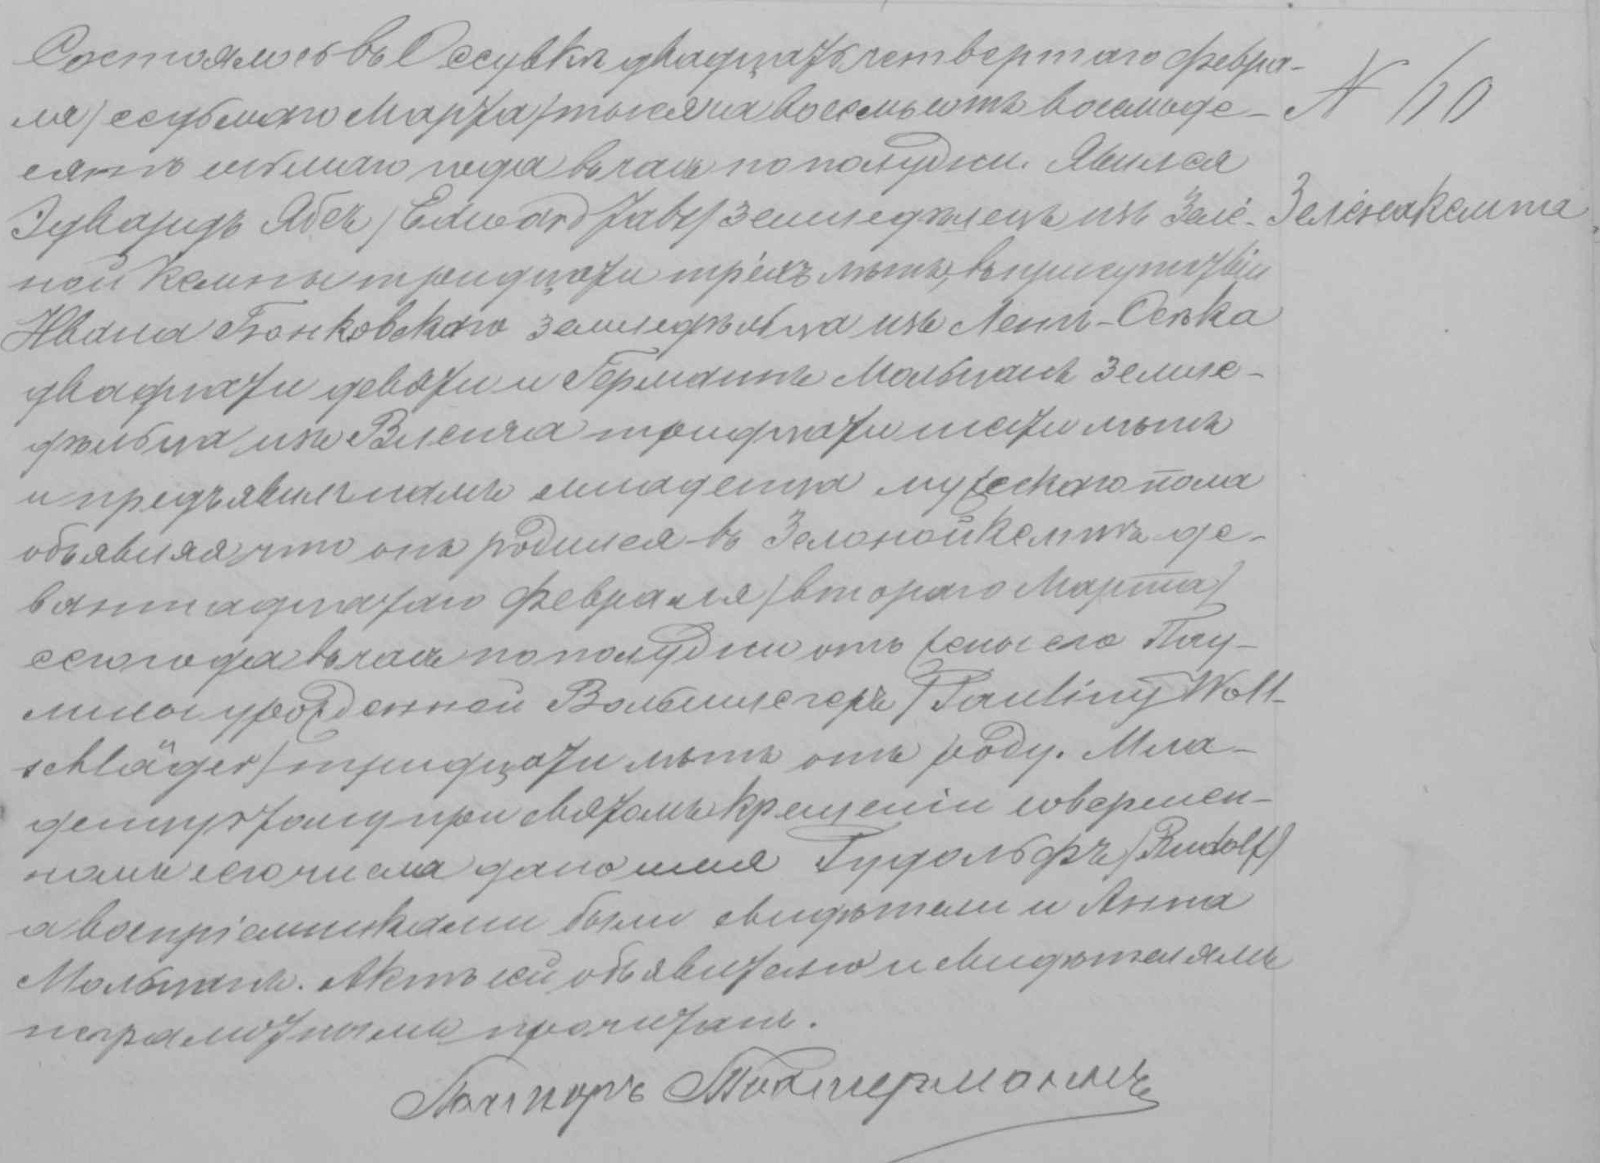 Состоялось въ Оссувкѣ двадцать четвертаго Февра-
ля /седьмаго Марта/ тысяча восемьсотъ восемьде-
сятъ седьмаго года въ часъ пополудни. Явился
Эдвардъ Ябсъ /Edward Jabs/ земледѣлецъ изъ Зелё-
ной Кемпы тридцати трёхъ лѣтъ, въ присутствіи
Ивана Бонковскаго земледѣльца изъ Лентъ-Оська
двадцати девяти и Германъ Мольцанъ земле-
дѣльца изъ Вленча тридцати шести лѣтъ
и предъявилъ намъ младенца мужескаго пола
объявляя что онъ родился въ Зеленой Кемпѣ де-
вятнадцатаго Февраля /втораго Марта/
сего года въ часъ пополудни отъ жены его Пау-
лины урожденной Вольшлегеръ /Pauliny Woll-
schläger/ тридцати лѣтъ отъ роду. Мла-
денцу этому при Святомъ Крещеніи совершен-
номъ сего числа дано имя Рудольфъ /Rudolf/
а воспріемниками были свидѣтели и Анна
Мольцанъ. Актъ сей объявителю и свидѣтелямъ
неграмотнымъ прочитанъ.
Пасторъ
N 60
Зелёна Кемпа